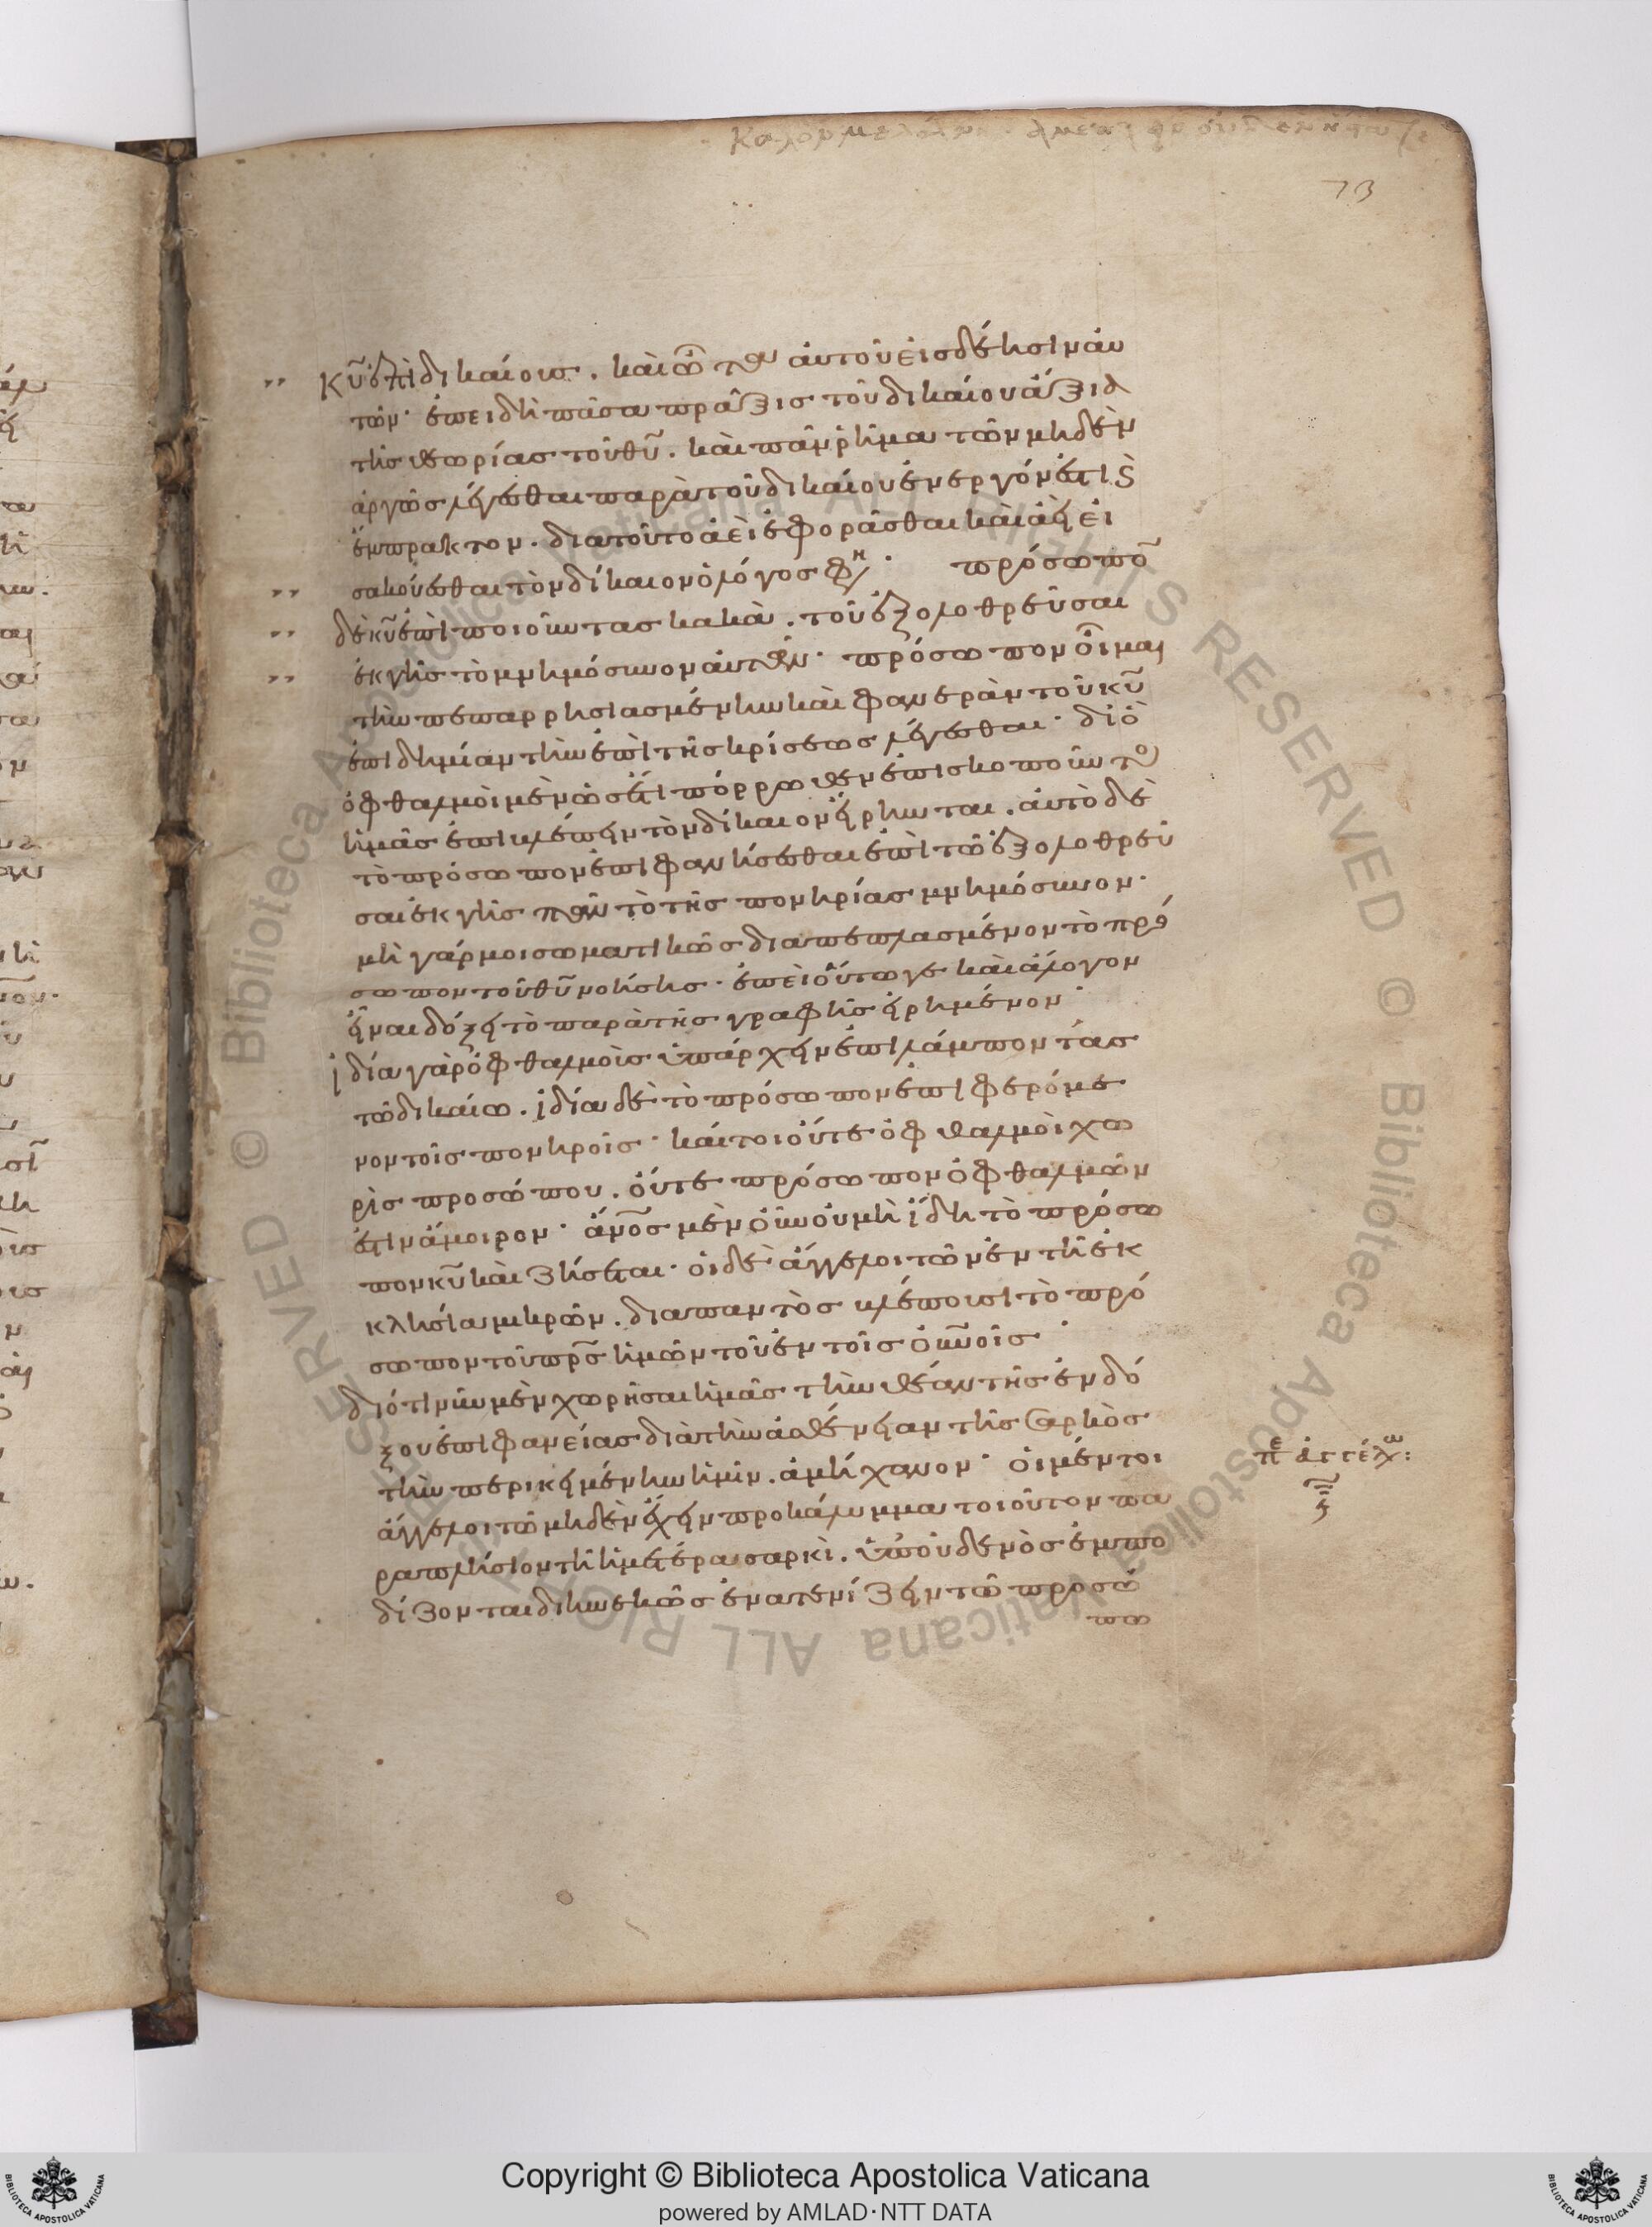 73
κυ̃ ἐπὶ δικαίους. καὶ ὦτα αὐτοῦ εἰς δέησιν αὐ
τῶν· ἐπειδὴ πᾶσα πρᾶξις τοῦ δικαίου ἀξία
τῆς θεωρίας τοῦ θυ̃. καὶ πᾶν ῥῆμα τῶ μηδὲν
ἀργῶς λέγεσθαι παρὰ τοῦ δικαίου ἐνεργόν ἐστι καὶ
ἔμπρακτον. διατοῦτο ἀεὶ ἐφορᾶσθαι καὶ ἀεὶ εἰ
σακούεσθαι τὸν δίκαιον ὁ λόγος φη· πρόσωπον
δὲ κυ̃ ἐπὶ ποιοῦντας κακὰ. τοῦ ἐξολοθρεῦσαι
ἐκ γῆς τὸ μνημόσυνον αὐτῶν· πρόσωπον οἶμαι
τὴν πεπαρρησιασμένην καὶ φανερὰν τοῦ κυ̃
ἐπιδημίαν τὴν ἐπὶ τῆς κρίσεως λέγεσθαι· διὸ
ὀφθαλμοὶ μὲν ὡς ἔτι πόρρωθεν ἐπισκοποῦντος
ἡμᾶς ἐπιβλέπειν τὸν δίκαιον εἴρηνται. αὐτὸ δὲ
τὸ πρόσωπον ἐπιφανήσεσθαι ἐπὶ τῶ ἐξολοθρεῦ
σαι ἐκ γῆς πᾶν τὸ τῆς πονηρίας μνημόσυνον·
μὴ γάρ μοι σωματικῶς διαπεπλασμένον τὸ πρό
σωπον τοῦ θυ̃ νοήσης· ἐπεὶ οὕτω γε καὶ ἄλογον
εἶναι δόξει τὸ παρὰ τῆς γραφῆς εἰρημένον·
ἰδία γὰρ ὀφθαλμοὺς ὑπάρχειν ἐπιλάμποντας
τῶ δικαίω. ἰδία δὲ τὸ πρόσωπον ἐπιφερόμε
νον τοῖς πονηροῖς· καίτοι οὔτε ὀφθαλμοὶ χω
ρὶς προσώπου. οὔτε πρόσωπον ὀφθαλμῶν
ἐστιν ἄμοιρον· ἄνος μὲν οὖν οὐ μὴ ἴδη τὸ πρόσω
πον κυ̃ καὶ ζήσεται· οἱ δὲ ἄγγελοι τῶν ἐν τῆ ἐκ
κλησία μικρῶν. διαπαντὸς βλέπουσι τὸ πρό
σωπον τοῦ πρς ἡμῶν τοῦ ἐν τοῖς οὐνοῖς·
διότι νῦν μὲν χωρῆσαι ἡμᾶς τὴν θέαν τῆς ἐνδό
ξου ἐπιφανείας διὰ τὴν ἀσθένειαν τῆς σαρκὸς
τὴν περικειμένην ἡμῖν. ἀμήχανον· οἱ μέντοι
ἄγγελοι τῶ μηδὲν ἔχειν προκάλυμμα τοιοῦτον πα
ραπλήσιον τῆ ἡμετέρα σαρκὶ. ὑπ' οὐδενὸς ἐμπο
δίζονται διηνεκῶς ἐνατενίζειν τῶ προσώ
πω